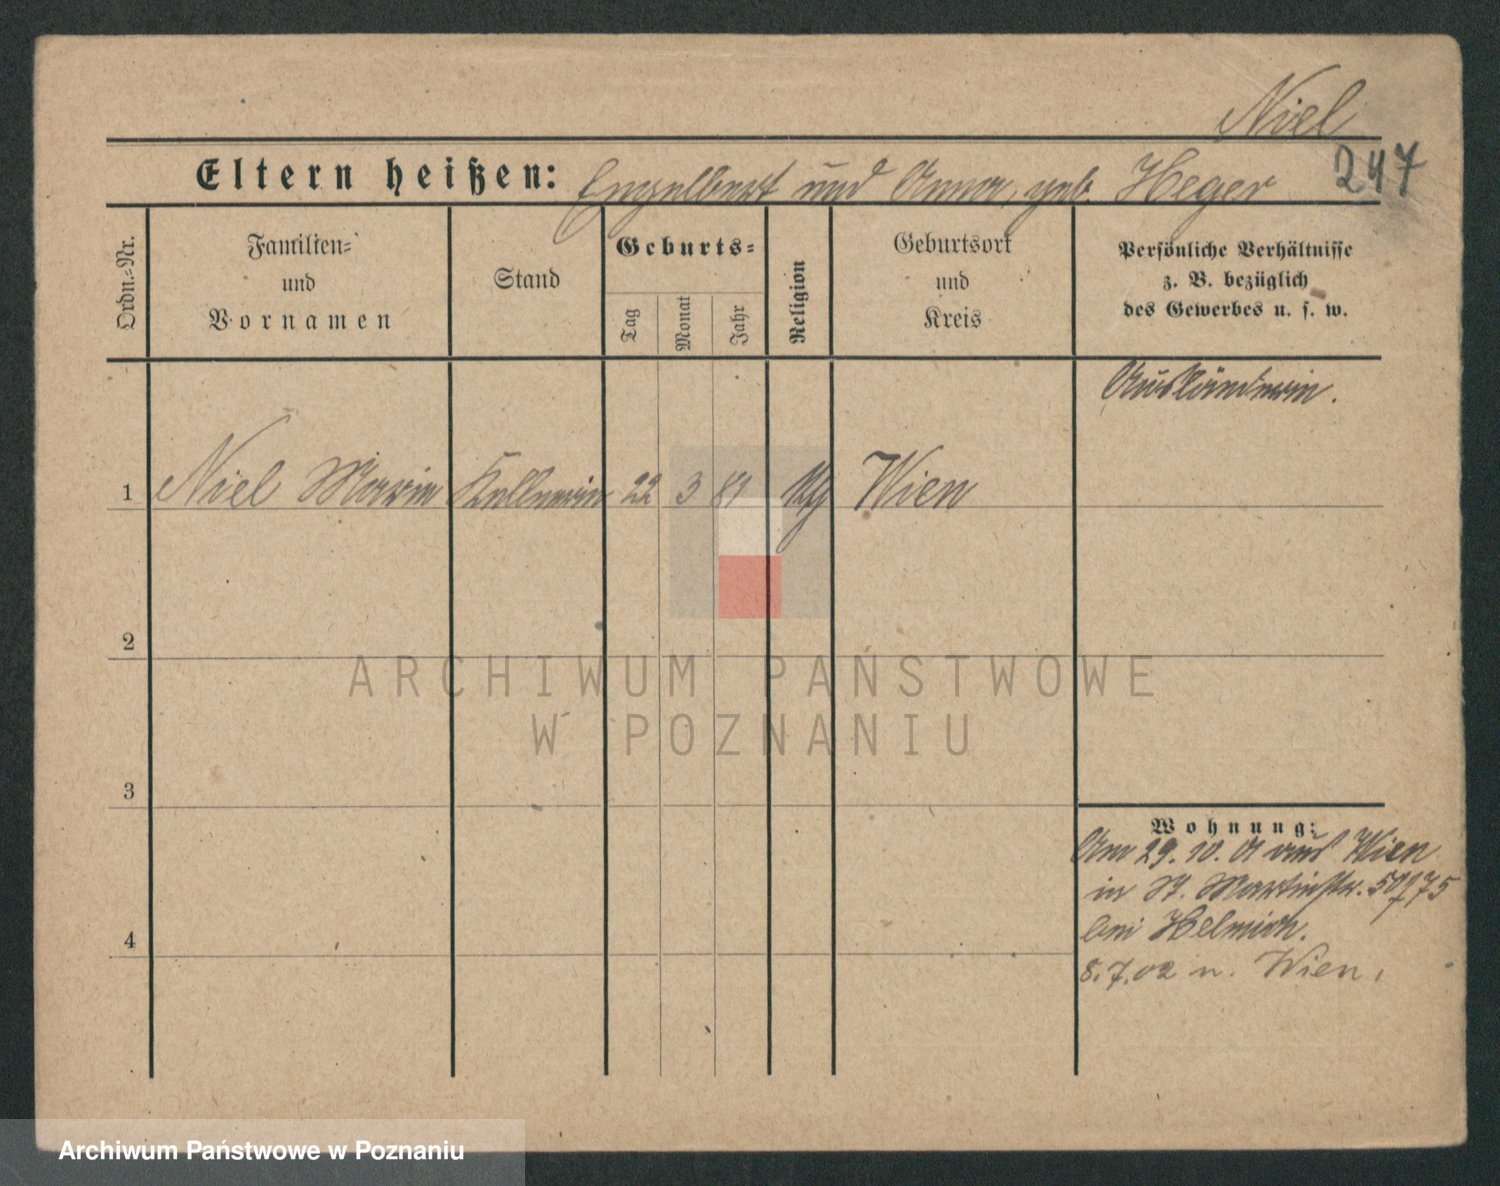 Niel
247
Eltern heißen: Engelbert und Anna, geb. Heger
Ordn.=Nr.
Familien=
und
Vornamen
Stand
Geburts=
Tag
Monat
Jahr
Religion
Geburtsort
und
Kreis
Persönliche Verhältnisse
z. B. bezüglich
des Gewerbes u. s. w.
Ausländerin.
1 Niel Marie Kellnerin 22 3 81 Wien
2
3
4
Wohnung:
Am 29.10.01 aus Wien
in St. Martinstr.
bei Helmich.
8.7.02 n. Wien.
ARCHIWUM PAŃSTWOWE
W POZNANIU
Archiwum Państwowe w Poznaniu